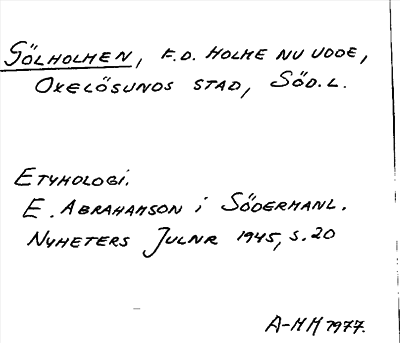 Sölholmen, f.d. holme nu udde,
Oxelösunds stad, Söd.l.
Etymologi.
E. Abrahamson i Södermanl.
Nyheters Julnr 1945, s.20
A-MM 1977.